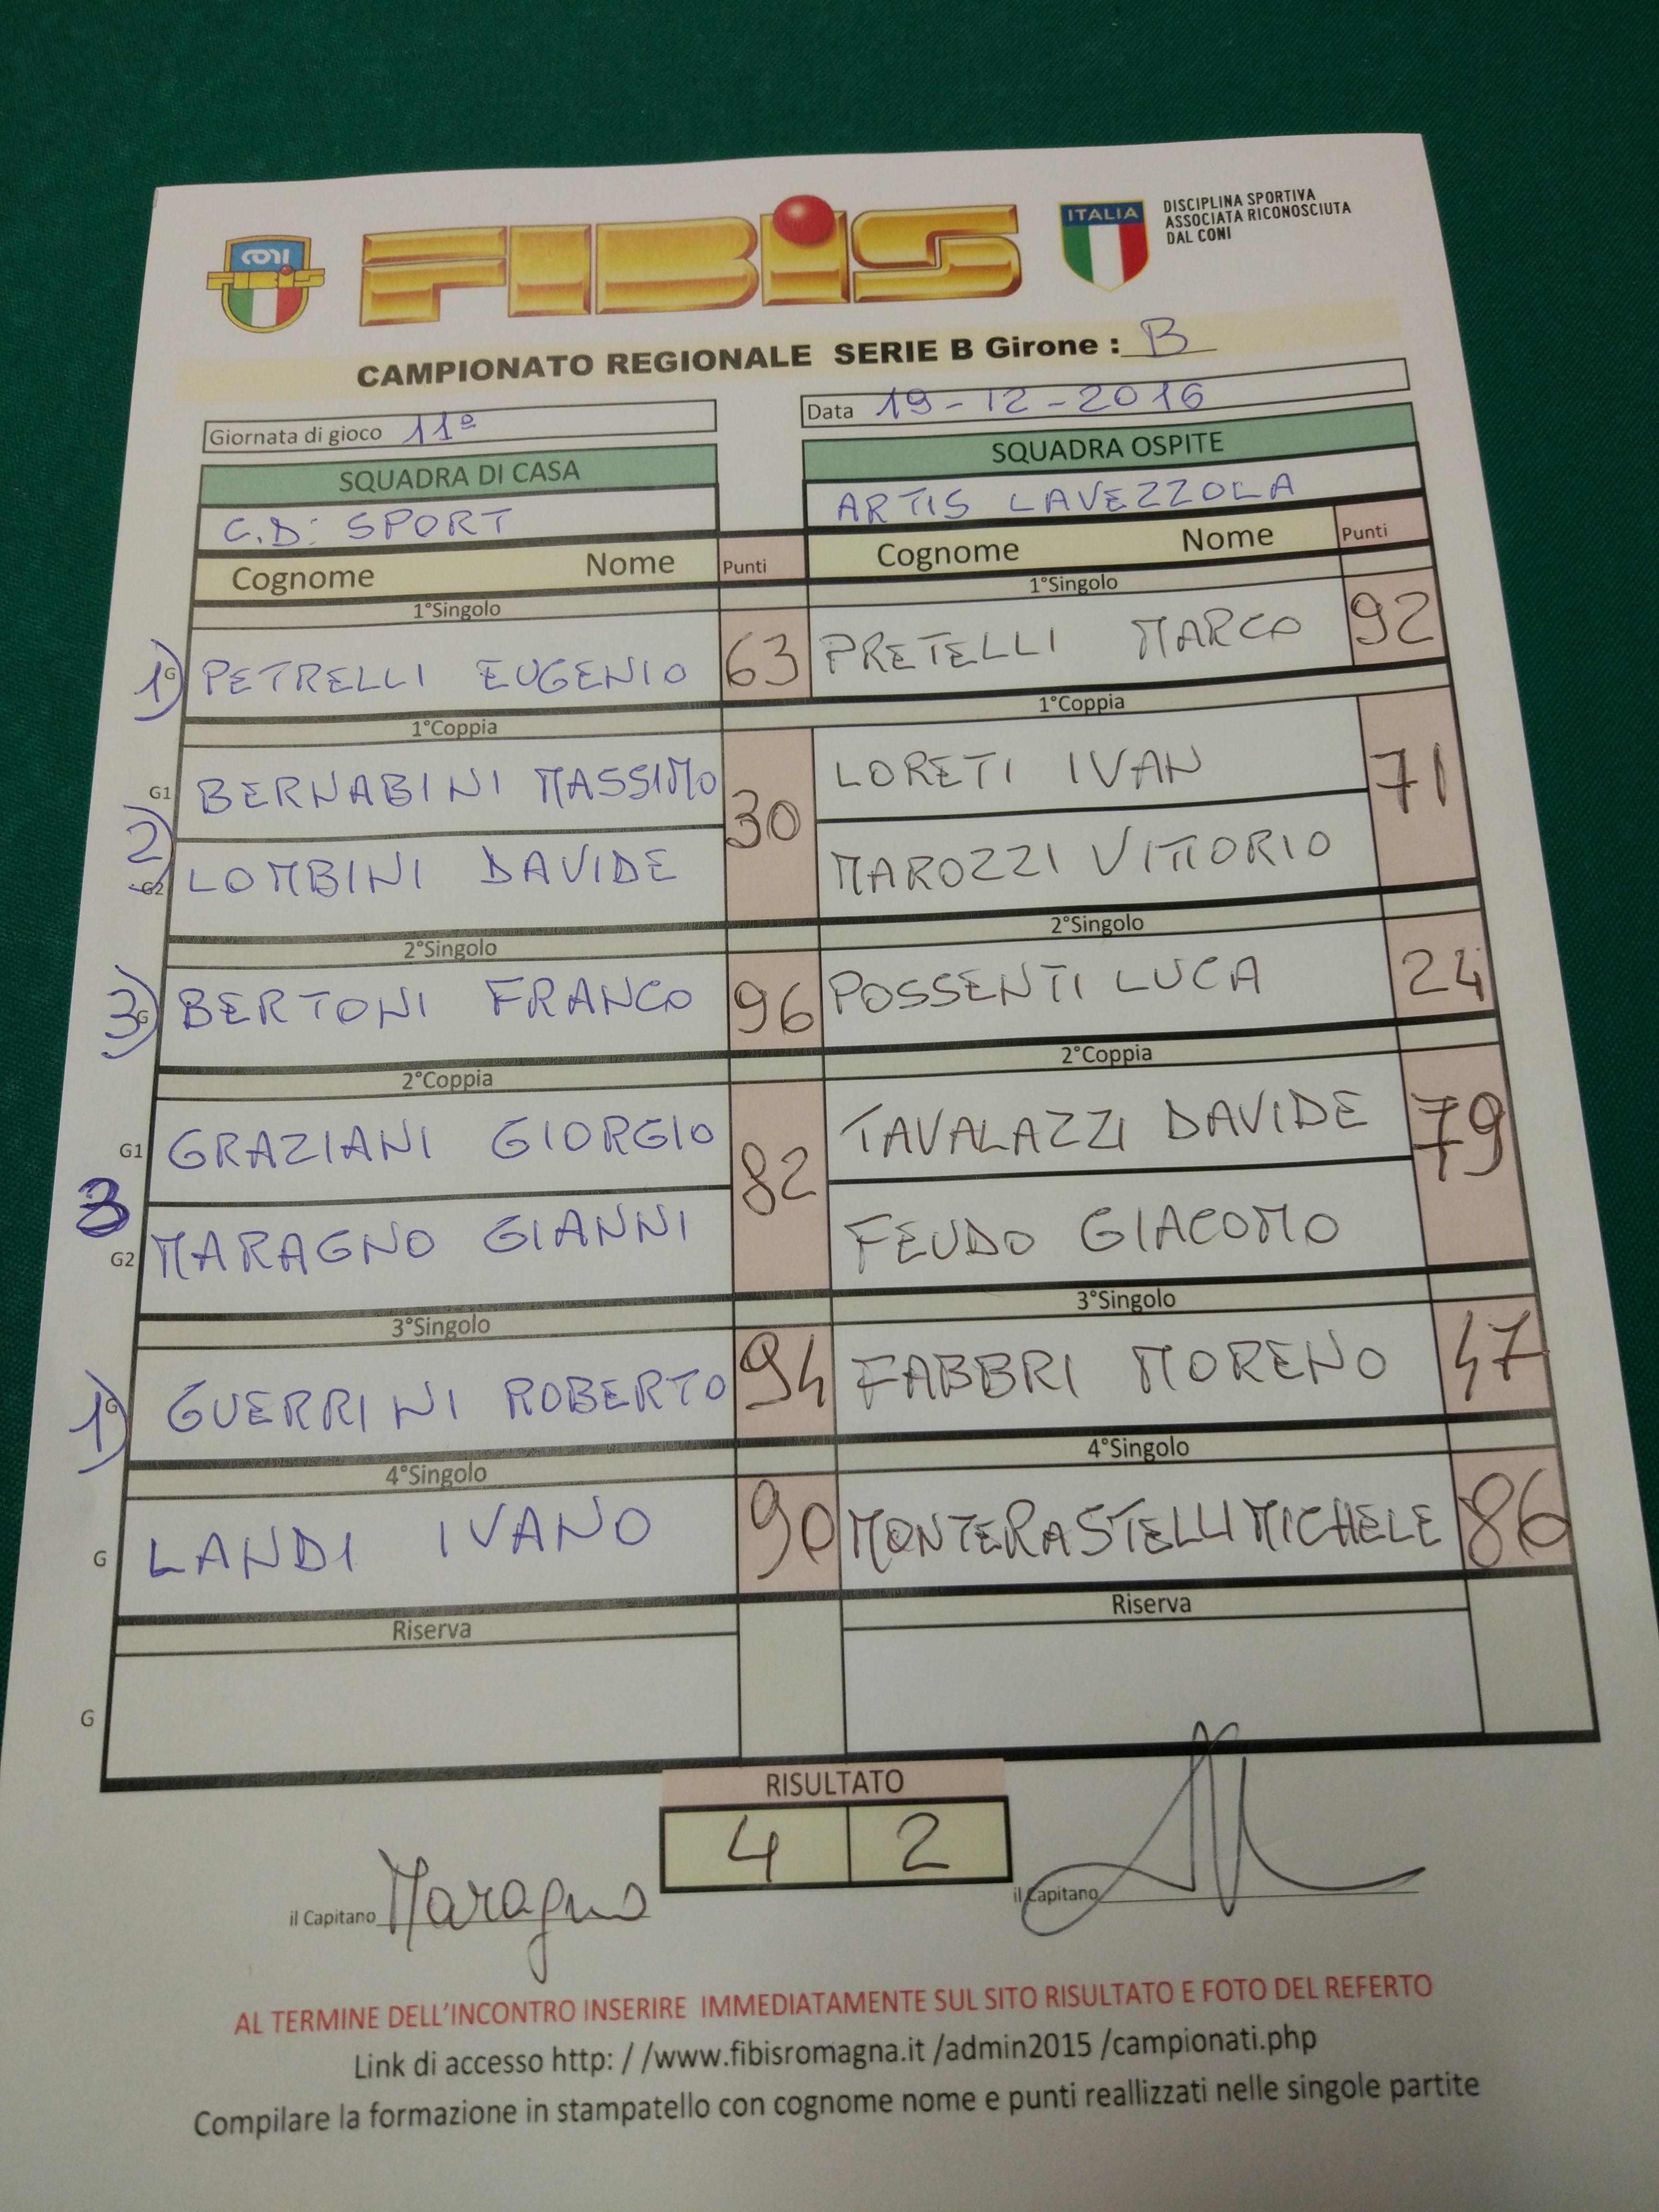 CONI
FIBIS
FIBIS
ITALIA
DISCIPLINA SPORTIVA
ASSOCIATA RICONOSCIUTA
DAL CONI
CAMPIONATO REGIONALE SERIE B Girone : B
Giornata di gioco 11ª
Data 19-12-2016
SQUADRA DI CASA
SQUADRA OSPITE
C.D: SPORT
ARTIS LAVEZZOLA
Cognome Nome Punti
Cognome Nome Punti
1°Singolo
1°Singolo
1) G PETRELLI EUGENIO 63
PRETELLI MARCO 92
1°Coppia
1°Coppia
G1 BERNABINI MASSIMO 30
LORETI IVAN 71
2)
G2 LOMBINI DAVIDE
MAROZZI VITTORIO
2°Singolo
2°Singolo
3) G BERTONI FRANCO 96
POSSENTI LUCA 24
2°Coppia
2°Coppia
G1 GRAZIANI GIORGIO 82
TAVALAZZI DAVIDE 79
3
G2 MARAGNO GIANNI
FEUDO GIACOMO
3°Singolo
3°Singolo
1) G GUERRINI ROBERTO 94
FABBRI MORENO 47
4°Singolo
4°Singolo
G LANDI IVANO 90
MONTERASTELLI MICHELE 86
Riserva
Riserva
G
RISULTATO
4 2
il Capitano Maragno
il Capitano
AL TERMINE DELL'INCONTRO INSERIRE IMMEDIATAMENTE SUL SITO RISULTATO E FOTO DEL REFERTO
Link di accesso http: / /www.fibisromagna.it /admin2015 /campionati.php
Compilare la formazione in stampatello con cognome nome e punti reallizzati nelle singole partite